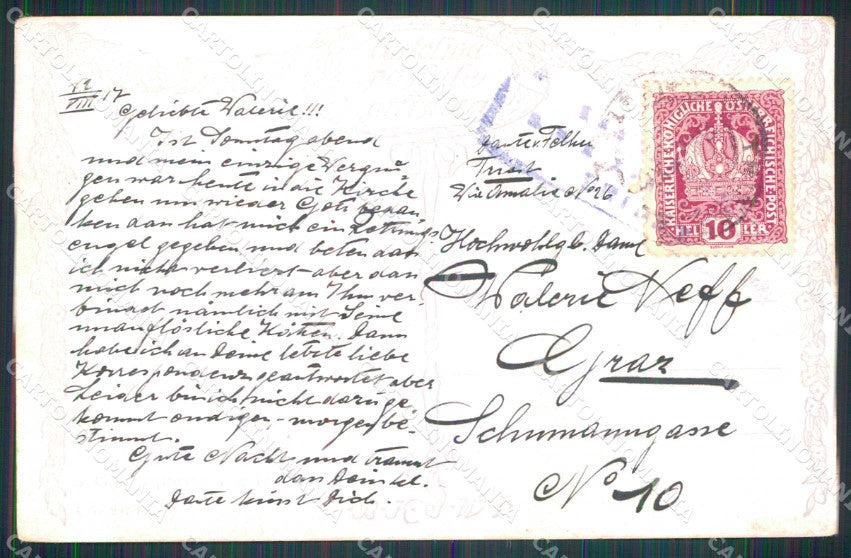 12/VIII 17
Geliebte Valerie!!!
Ist Sonntag abend
und mein einzige Vergnü
gen war heute in die Kirche
gehen um wieder Gott
dan hat mich ein Rettungs
engel gegeben und beten das
ich nicht verliert - aber dan
mich noch mehr am Ihm ver
bindet nämlich mit Seine
unauflösliche Ketten. Dann
habe ich an Deine letzte liebe
Korrespondenz geantwortet aber
Leider bin ich nicht dazu ge
kommt endigen - morgen be-
stimmt.
Gute Nacht und träumt
dan
küsst Dich.
Triest
Via Amalie No 26
Hochwohlgb. Dame
Valerie Neff
Graz
Schumanngasse
No 10
KAISERLICHE KÖNIGLICHE ÖSTERREICHISCHE POST
HEL 10 LER
CARTOLINOMANIA